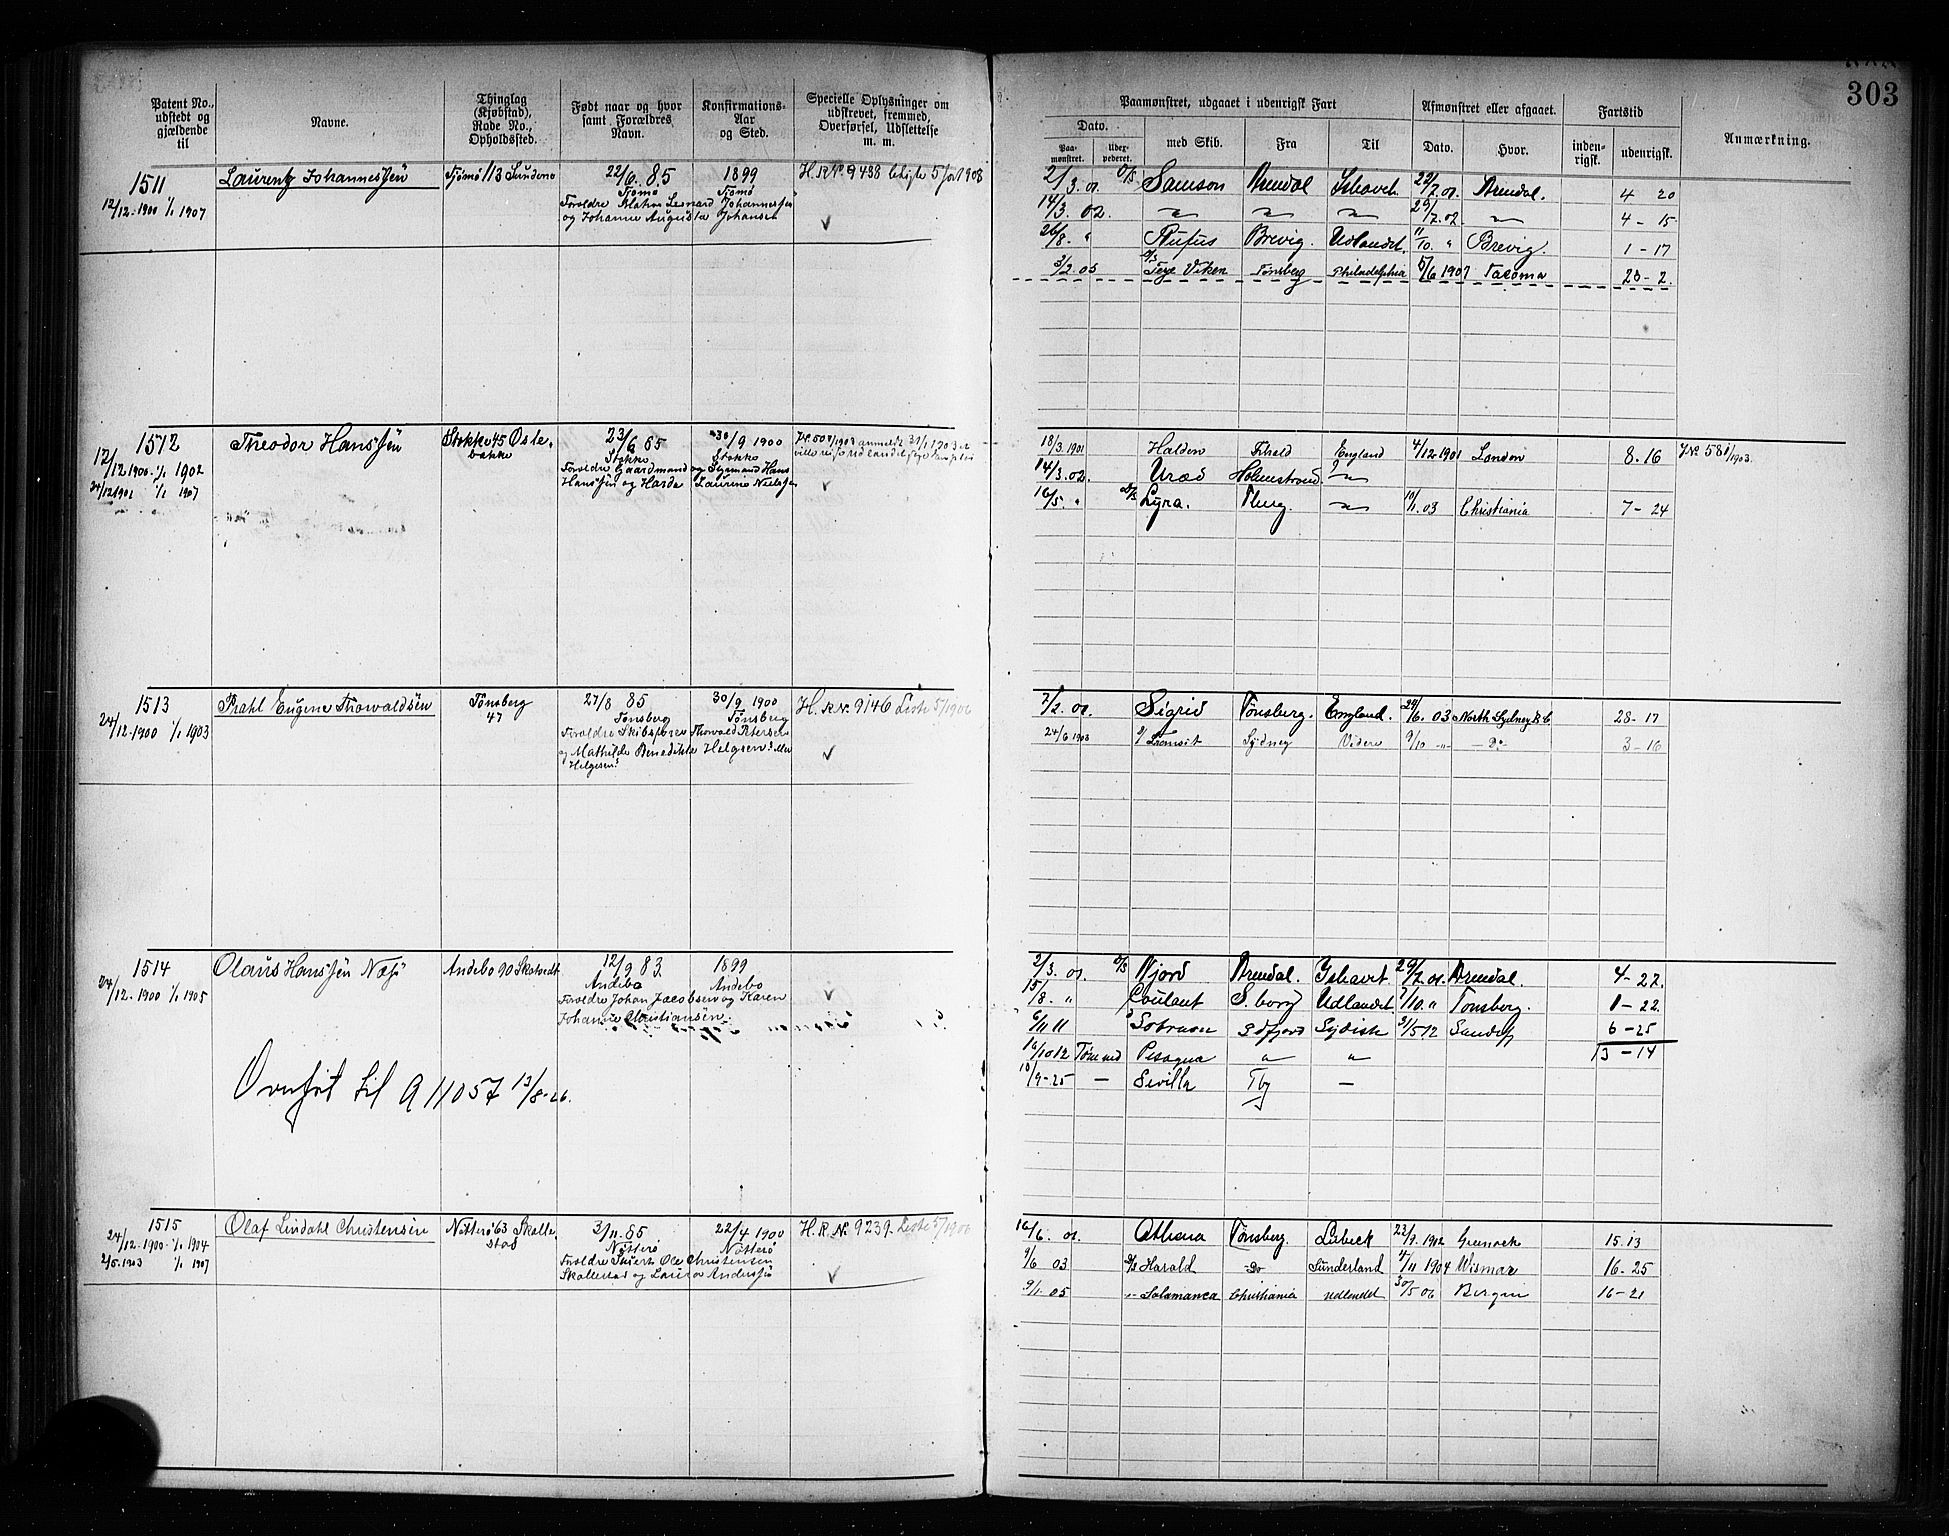 303
Patent No., udstedt og gjældende til
Navne.
Thinglag (Kjøbstad), Rode No., Opholdssted.
Født naar og hvor samt Forældres Navn.
Konfirmations-Aar og Sted.
Specielle Oplysninger om udskrevet, fremmed, Overførsel, Udslettelse m. m.
Paamønstret, udgaaet i udenrigsk Fart
Afmønstret eller afgaaet.
Fartstid
Anmærkning.
Dato.
Paa-mønstret.
Udex-pederet.
med Skib.
Fra
Til
Dato.
Hvor.
inden-rigsk.
udenrigsk.
1511
12/12-1900 1/1 1907
Laurentz Johannessen
Tjømø 113 Sundene
22/6 85
Tjømø
1899
Tjømø
Forældre Leonard Johannessen
og Johanne Augusta Johansen
H.R.Nº 9438
2/3.01. Samson Arendal Ishavet 22/7.01. Arendal. 4 20
14/3.02. " " " 29/7.02. " 4-15
26/8. " Rufus Brevig. Udlandet. 11/10. " Brevig. 1-17
3/2.05 Terje Viken Tønsberg Philadelphia 5/6 1907 Tacoma 23-2
1512
12/12 1900 1/1 1902
24/12 1901 1/1 1907
Theodor Hanssen
Stokke 45 Østebakke
23/6 85
Stokke
30/9 1900
Stokke
Forældre Gaardmand og Sømand Hans
Hanssen og Laurine Nielsen
18/3.1901 Halden Fkhald England 4/12 1901 London 8.16
14/3.02. Uræd Holmestrand "
16/5. " D/S Lyra. Tberg. " 10/1.03 Christiania 7-24
1513
24/12-1900 1/1 1903
Prahl Eugene Thorwaldsen
Tønsberg
47
27/8 85
Tønsberg
30/9 1900
Tønsberg
Forældre Skibsfører Thorvald Petersen
og Mathilde Benedikte Helgsen? eller
Helgesen?
H.R.Nº 9146 Liste 5/1906
7/2.01. Sigrid Tønsberg. England. 24/6.03 North Sydney B.C 28-17
24/6 1903 Tromsit Sydney Videre 9/10 " - Dº 3-16
1514
24/12-1900 1/1 1905
Olaus Hanssen Næsø
Andebo 90 Skatvedt
12/9 83.
Andebo
1899
Andebo
Forældre Johan Jacobsen og Karen
Johanne Christiansen.
Overført til A 11057 13/8-26.
2/3.01. D/S Njord Arendal. Ishavet 29/7.01. Arendal. 4-22.
15/8. " Coulant S.borg Udlandet 1/10. " Tønsberg. 1-22.
6/11 11 Sobraon Sdfjord Sydish 31/5 12 Sandefj 6-25
13-14
16/10 12 Pisagua " "
10/9-25 - Sevilla Tbg -
1515
24/12-1900 1/1 1904
2/5.1903 1/1 1907
Olaf Lindahl Christensen
Nøtterø 63 Skallestad
3/11.85
Nøtterø
22/4 1900
Nøtterø
Forældre Ole Christensen
Skallestad og Laura Anderssen
H.R.Nº 9239. Liste 5/1906
16/6.01. Athena Tønsberg. Lübeck 23/9.1902 Greenock 15.13
9/6 03 D/S Harald Do Sunderland 4/11 1904 Wismar 16-25
9/1.05 " Salamanca Christiania udlandet 30/5 06 Bergen 16-21